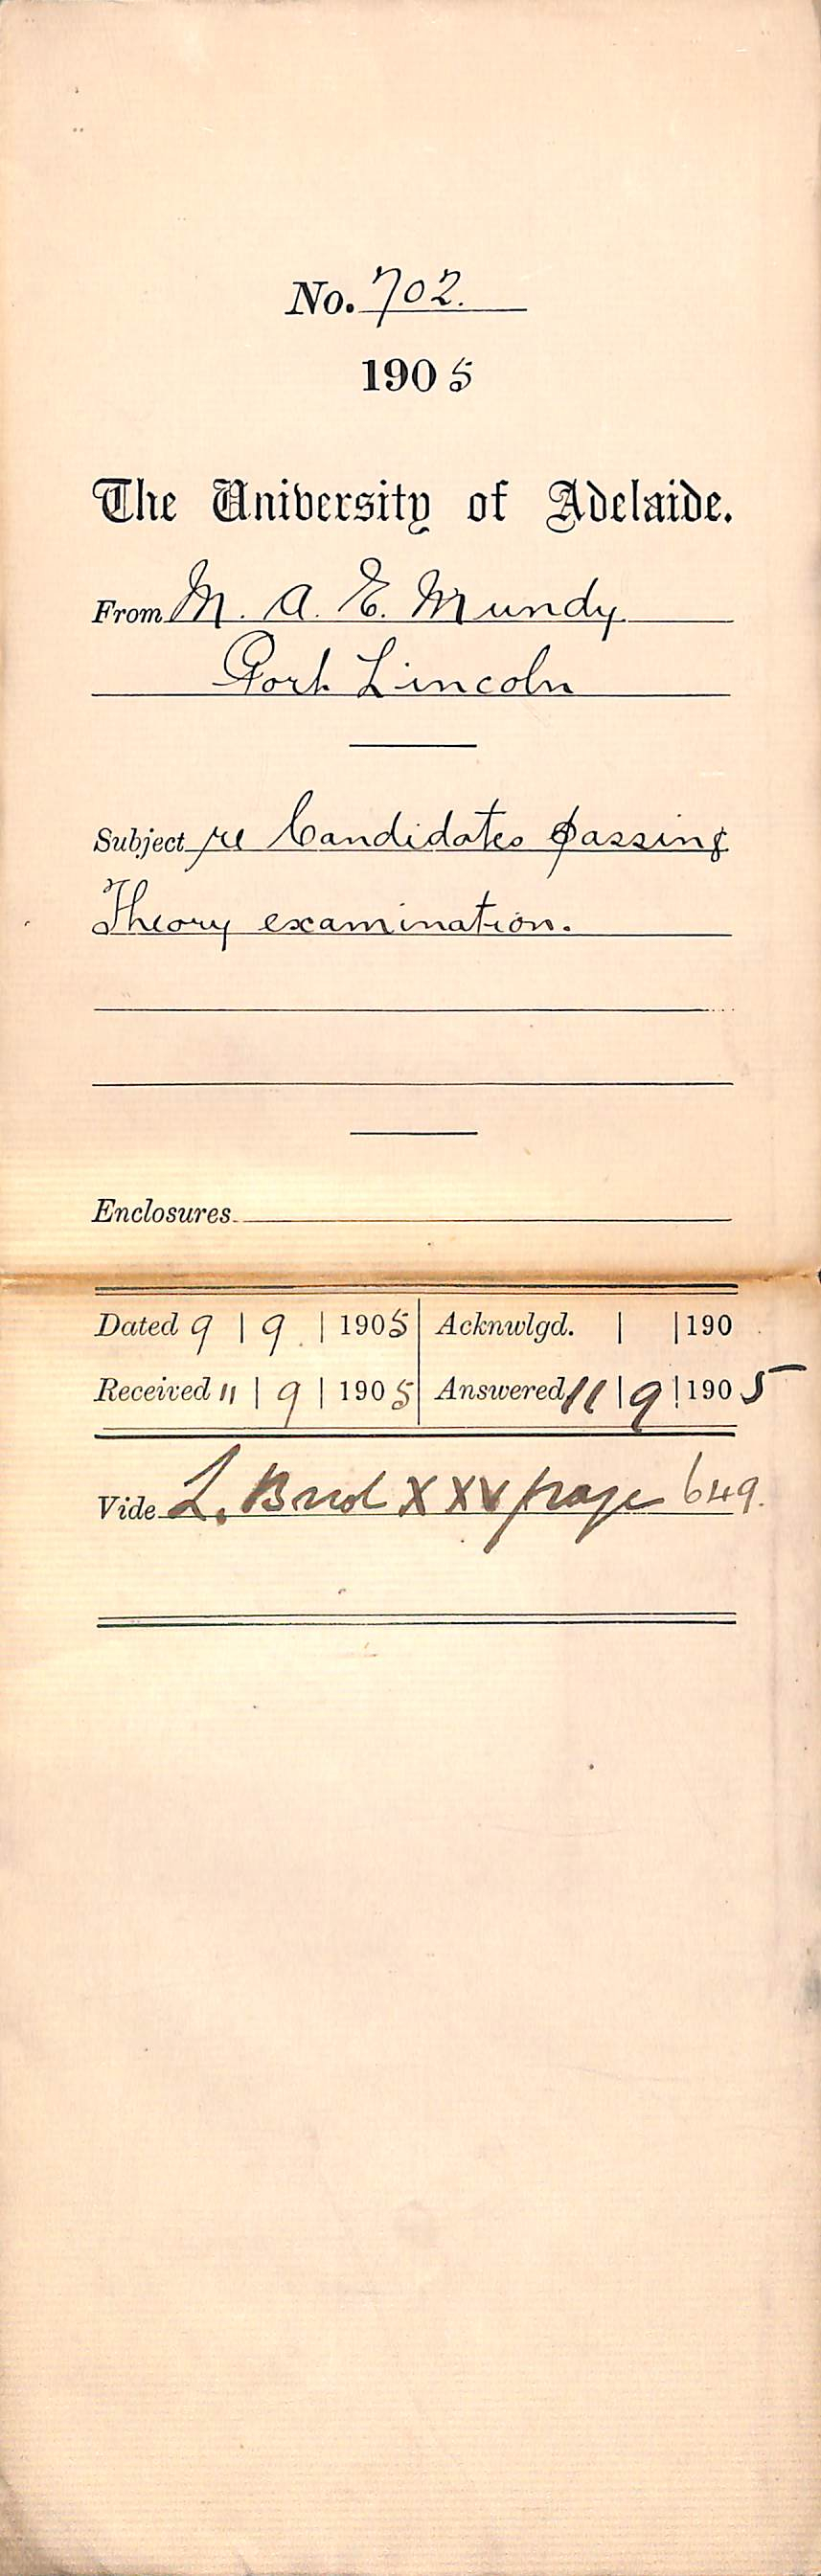 No. 702.
1905
The University of Adelaide.
From M. A. E. Mundy
Port Lincoln
Subject re Candidates passing
Theory examination.
Enclosures
Dated 9 | 9. | 1905 Acknwlgd. | | 190
Received 11 | 9 | 1905 Answered 11 | 9 | 1905
Vide L. XXV page 649.